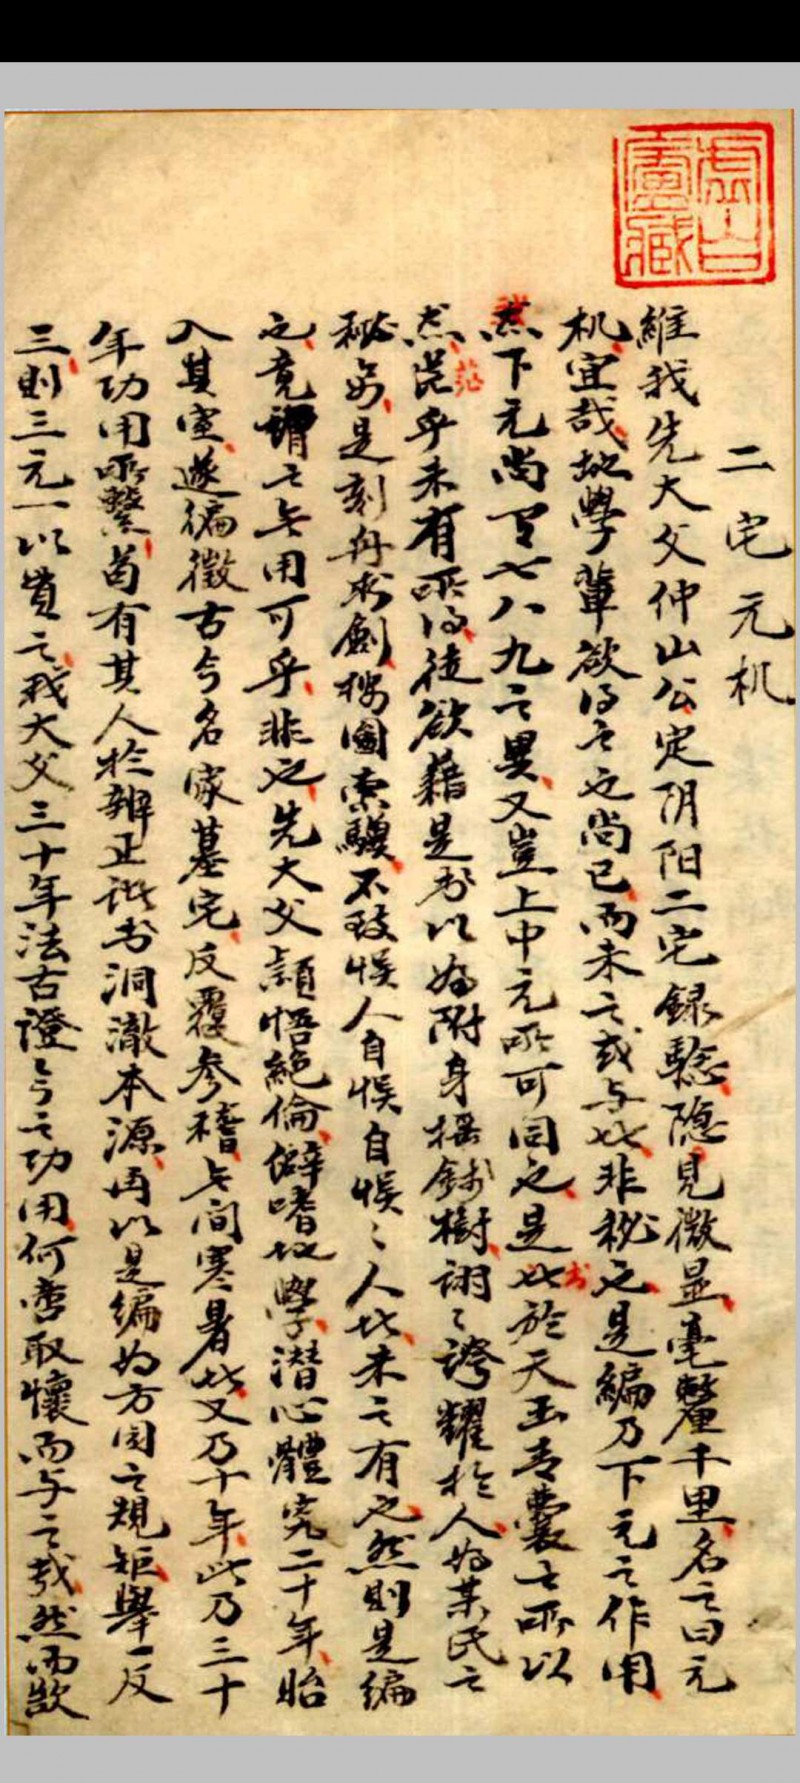 虛白廬藏
二宅元机
維我先大父仲山公定阴阳二宅録驗隐見微显毫釐千里名之曰元
机宜哉地學軰欲得之也尚已而未之或与此非秘之是編乃下元之作用
然下元尚有七八九之異又豈上中元所可同之是此於天玉青囊之所以
然茫乎未有所得徒欲藉是书以為附身摇錢樹诩〻誇耀於人為某氏之
秘本是刻舟求劍按圖索驥不致悮人自悮自悮〻人此未之有也然則是编
之竟謂之无用可乎非也先大父頴悟絕倫僻嗜地學潜心體究二十年始
入其室遂徧徵古今名家墓宅反覆参稽无间寒暑此又乃十年此乃三十
年功用所繫苟有其人於辨正諸书洞澈本源再以是编为方圆之規矩舉一反
三則三元一以貫之我大父三十年法古證今之功用何啻取懷而与之哉然而欲